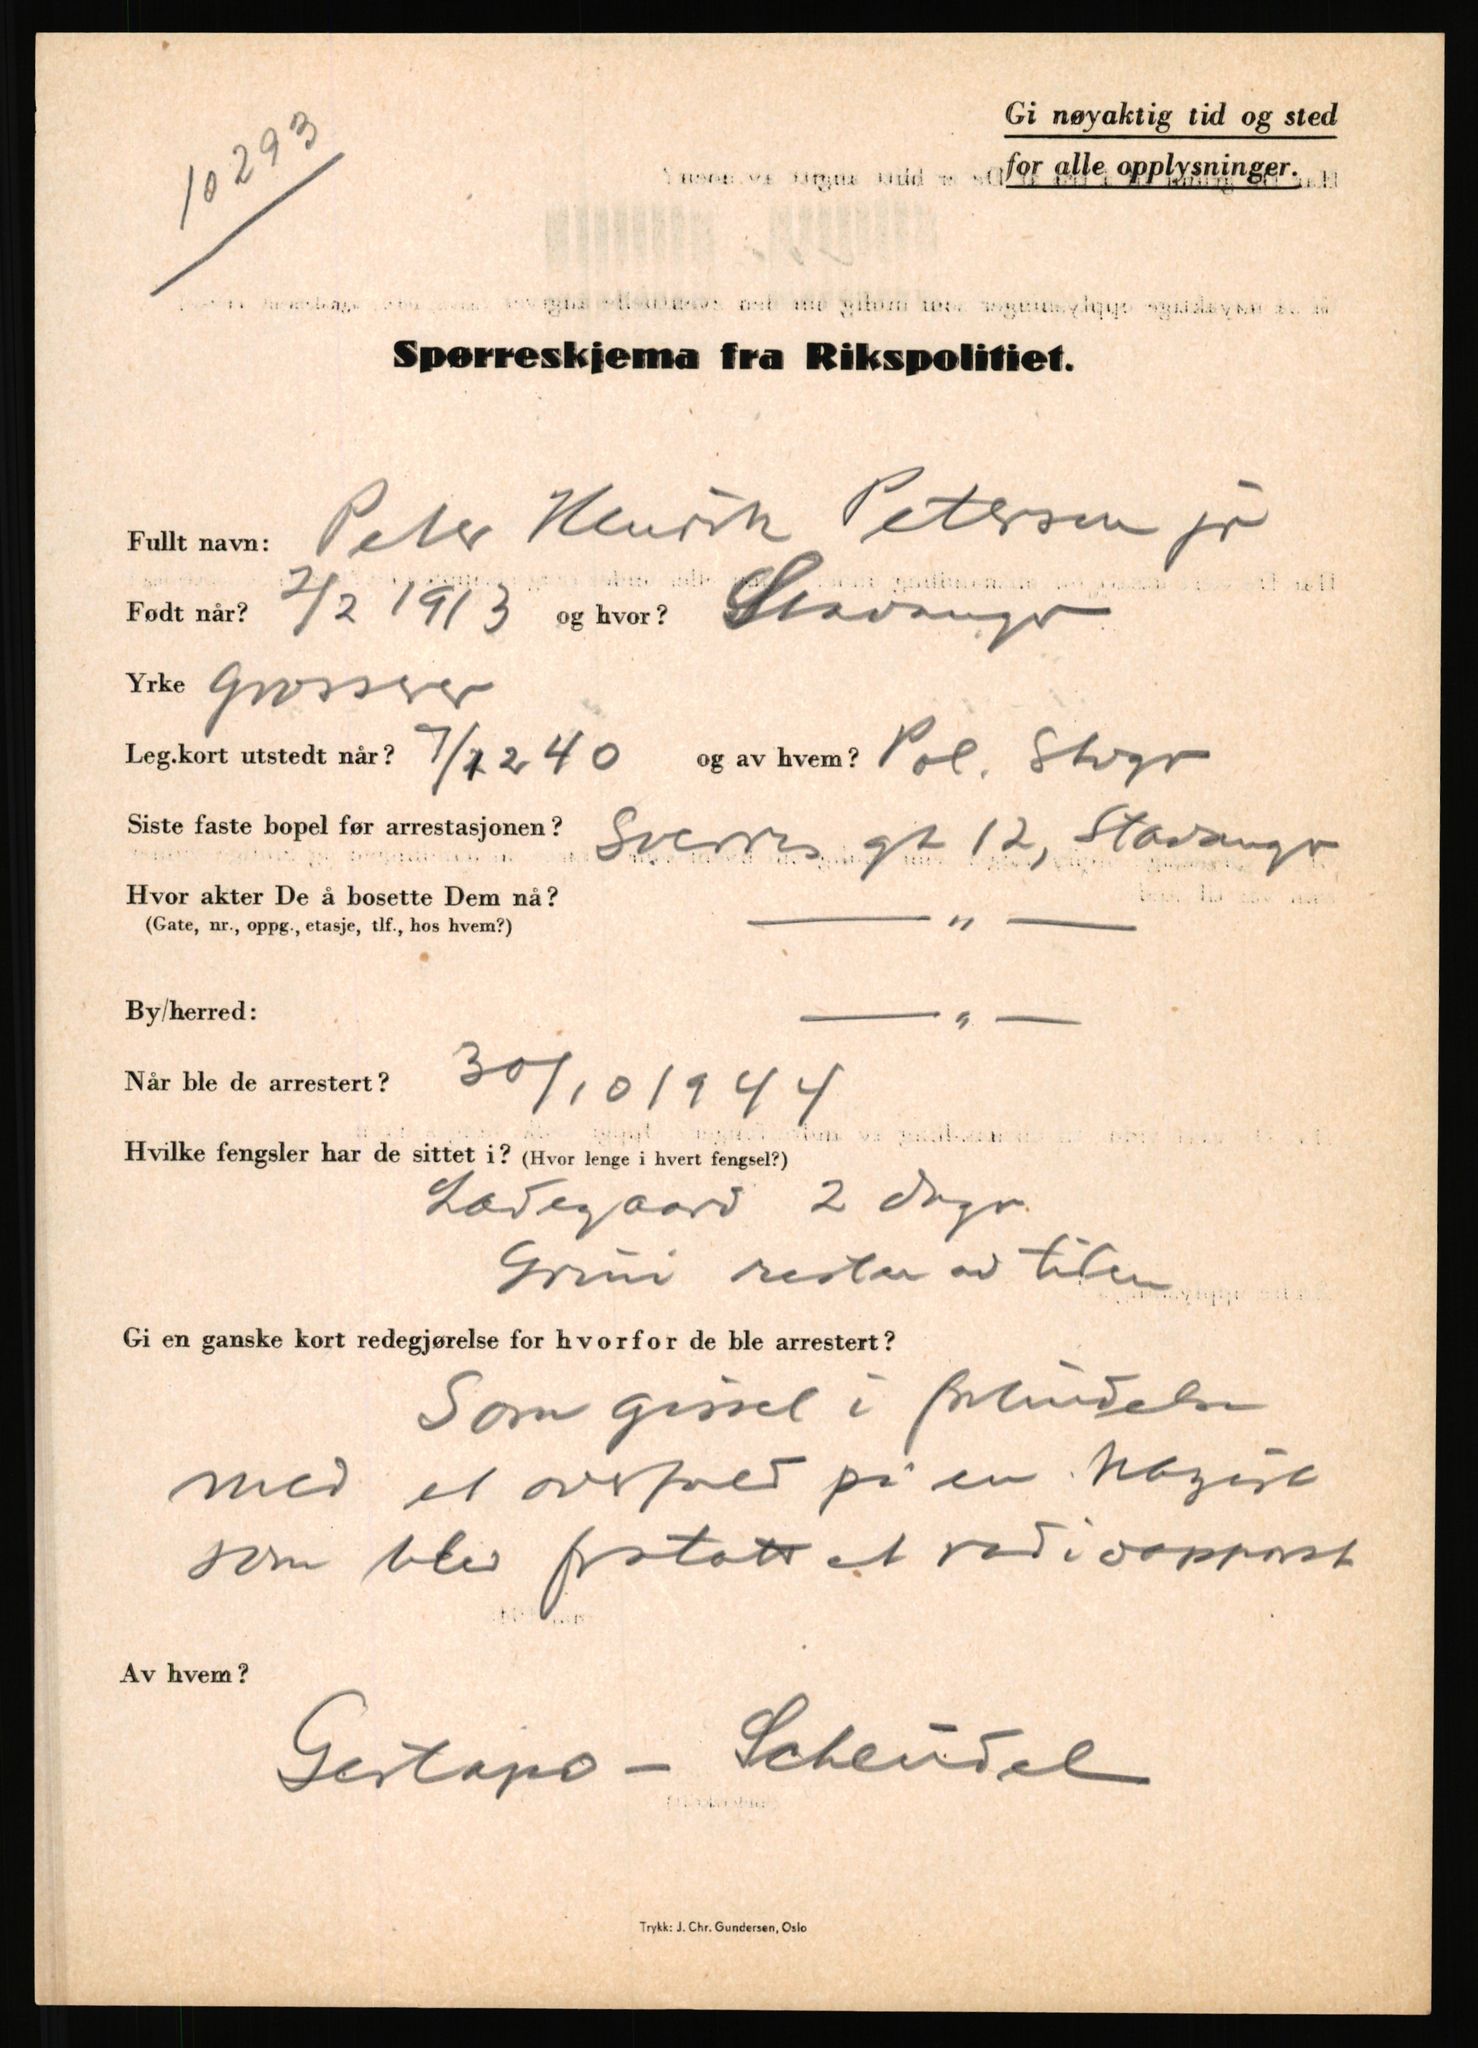 10293
Gi nøyaktig tid og sted
for alle opplysninger.
Spørreskjema fra Rikspolitiet.
Fullt navn: Peter Henrik Petersen jr
Født når? 2/2 1913 og hvor? Stavanger
Yrke Grosserer
Leg.kort utstedt når? 7/12 40 og av hvem? Pol. Stvgr
Siste faste bopel før arrestasjonen? Sverres gt 12, Stavanger
Hvor akter De å bosette Dem nå? — " —
(Gate, nr., oppg., etasje, tlf., hos hvem?)
By/herred: — " —
Når ble de arrestert? 30/10 1944
Hvilke fengsler har de sittet i? (Hvor lenge i hvert fengsel?)
Ladegaard 2 dager
Grini resten av tiden
Gi en ganske kort redegjørelse for hvorfor de ble arrestert?
Som gissel i forbindelse
med et overfald på en Nazist
som blev frastatt et radioapparat
Av hvem?
Gestapo —
Trykk: J. Chr. Gundersen, Oslo